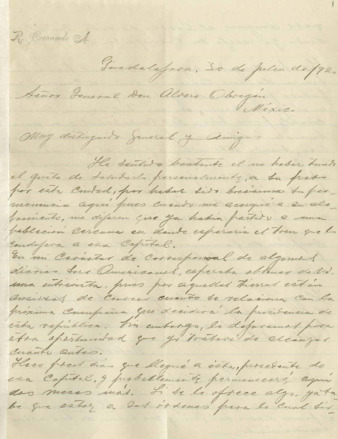 R. Cervando A.
Guadalajara, 30 de Julio de 192
Señor General Don Alvaro Obregón
México.
Muy distinguido General y Amigo
He sentido bastante el no haber tenido
el gusto de saludarlo personalmente, a su paso
por esta Ciudad, por haber sido brevísima su per-
manencia aquí pues cuando me acerqué a su alo-
jamiento, me dijeron que ya había partido a una
población cercana en donde esperaría el tren que lo
condujera a esa Capital.
En mi carácter de Corresponsal de algunos
diarios Sur Americanos, esperaba obtener de Ud.
una entrevista, pues por aquellas tierras están
ansiosos de conocer cuanto se relaciona con la
próxima campaña, que decidirá la presidencia de
esta república. Sin embargo, lo dejaremos para
otra oportunidad que yo trataré de alcanzar
cuanto antes.
Hace pocos días que llegué a ésta, procedente de
esa Capital, y probablemente permaneceré aquí
dos meses más. Si se le ofrece algo, ya sa-
be que estoy a sus órdenes para lo cual